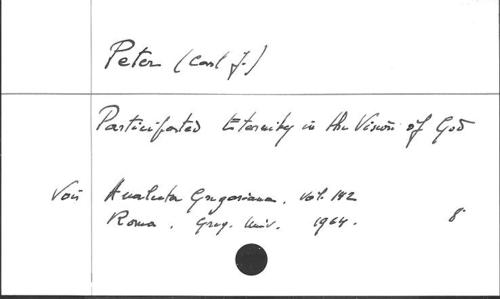 Peter (Carl J.)
Participated Eternity in the Vision of God
Voir Analecta Gregoriana. Vol. 142
Roma. Greg. Univ. 1964. 8°